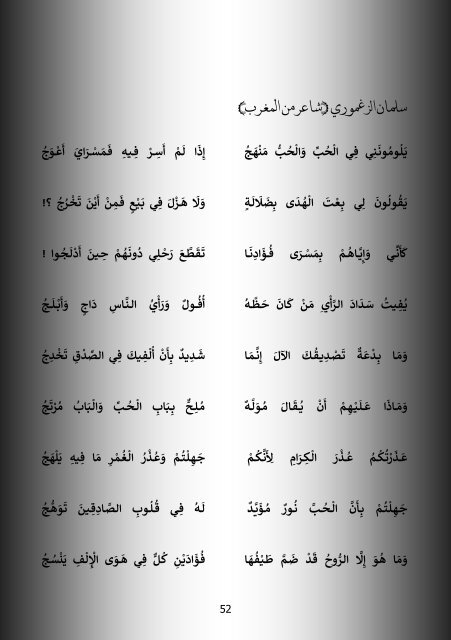 سلمان الزغموري (شاعر من المغرب)
يَلُومُونَنِي فِي الْحُبِّ وَالْحُبُّ مَنْهَجُ إِذَا لَمْ أَسِرْ فِيهِ فَمَسْرَايَ أَعْوَجُ
يَقُولُونَ لِي بِعْتَ الْهُدَى بِضَلَالَةٍ وَلَا هَزْلَ فِي بَيْعٍ فَمِنْ أَيْنَ تَخْرُجُ ؟!
كَأَنِّي وَإِيَّاهُمْ بِمَسْرَى فُؤَادِنَا تَقَطَّعَ رَحْلِي دُونَهُمْ حِينَ أَدْلَجُوا !
يُفِيتُ سَدَادَ الرَّأْيِ مَنْ كَانَ حَظُّهُ أُفُولٌ وَرَأْيُ النَّاسِ دَاجٍ وَأَبْلَجُ
وَمَا بِدْعَةٌ تَصْدِيقُكَ الآلَ إِنَّمَا شَدِيدٌ بِأَنْ أُلْفِيكَ فِي الصِّدْقِ تَخْدِجُ
وَمَاذَا عَلَيْهِمْ أَنْ يُقَالَ مُوَلَّهٌ مُلِحٌّ بِبَابِ الْحُبِّ وَالْبَابُ مُرْتَجُ
عَذَرْتُكُمُ عُذْرَ الْكِرَامِ لِأَنَّكُمْ جَهِلْتُمْ وَعُذْرُ الْغُمْرِ مَا فِيهِ يَلْهَجُ
جَهِلْتُمْ بِأَنَّ الْحُبَّ نُورٌ مُؤَبَّدٌ لَهُ فِي قُلُوبِ الصَّادِقِينَ تَوَهُّجُ
وَمَا هُوَ إِلَّا الرُّوحُ قَدْ ضَمَّ طَيْفُهَا فُؤَادَيْنِ كُلٌّ فِي هَوَى الْإِلْفِ يَنْسُجُ
52